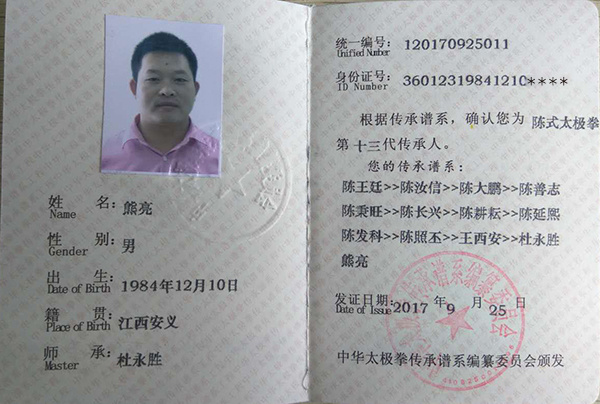 姓 名: 熊亮
Name
性 别: 男
Gender
出 生: 1984年12月10日
Date of Birth
籍 贯: 江西安义
Place of Birth
师 承: 杜永胜
Master
统一编号: 120170925011
Unified Number
身份证号: 36012319841210****
ID Number
根据传承谱系,确认您为 陈式太极拳
第 十三代传承人。
您的传承谱系:
陈王廷>>陈汝信>>陈大鹏>>陈善志
陈秉旺>>陈长兴>>陈耕耘>>陈延熙
陈发科>>陈照丕>>王西安>>杜永胜
熊亮
发证日期: 2017 年 9 月 25 日
Date of Issue
中华太极拳传承谱系编纂委员会颁发